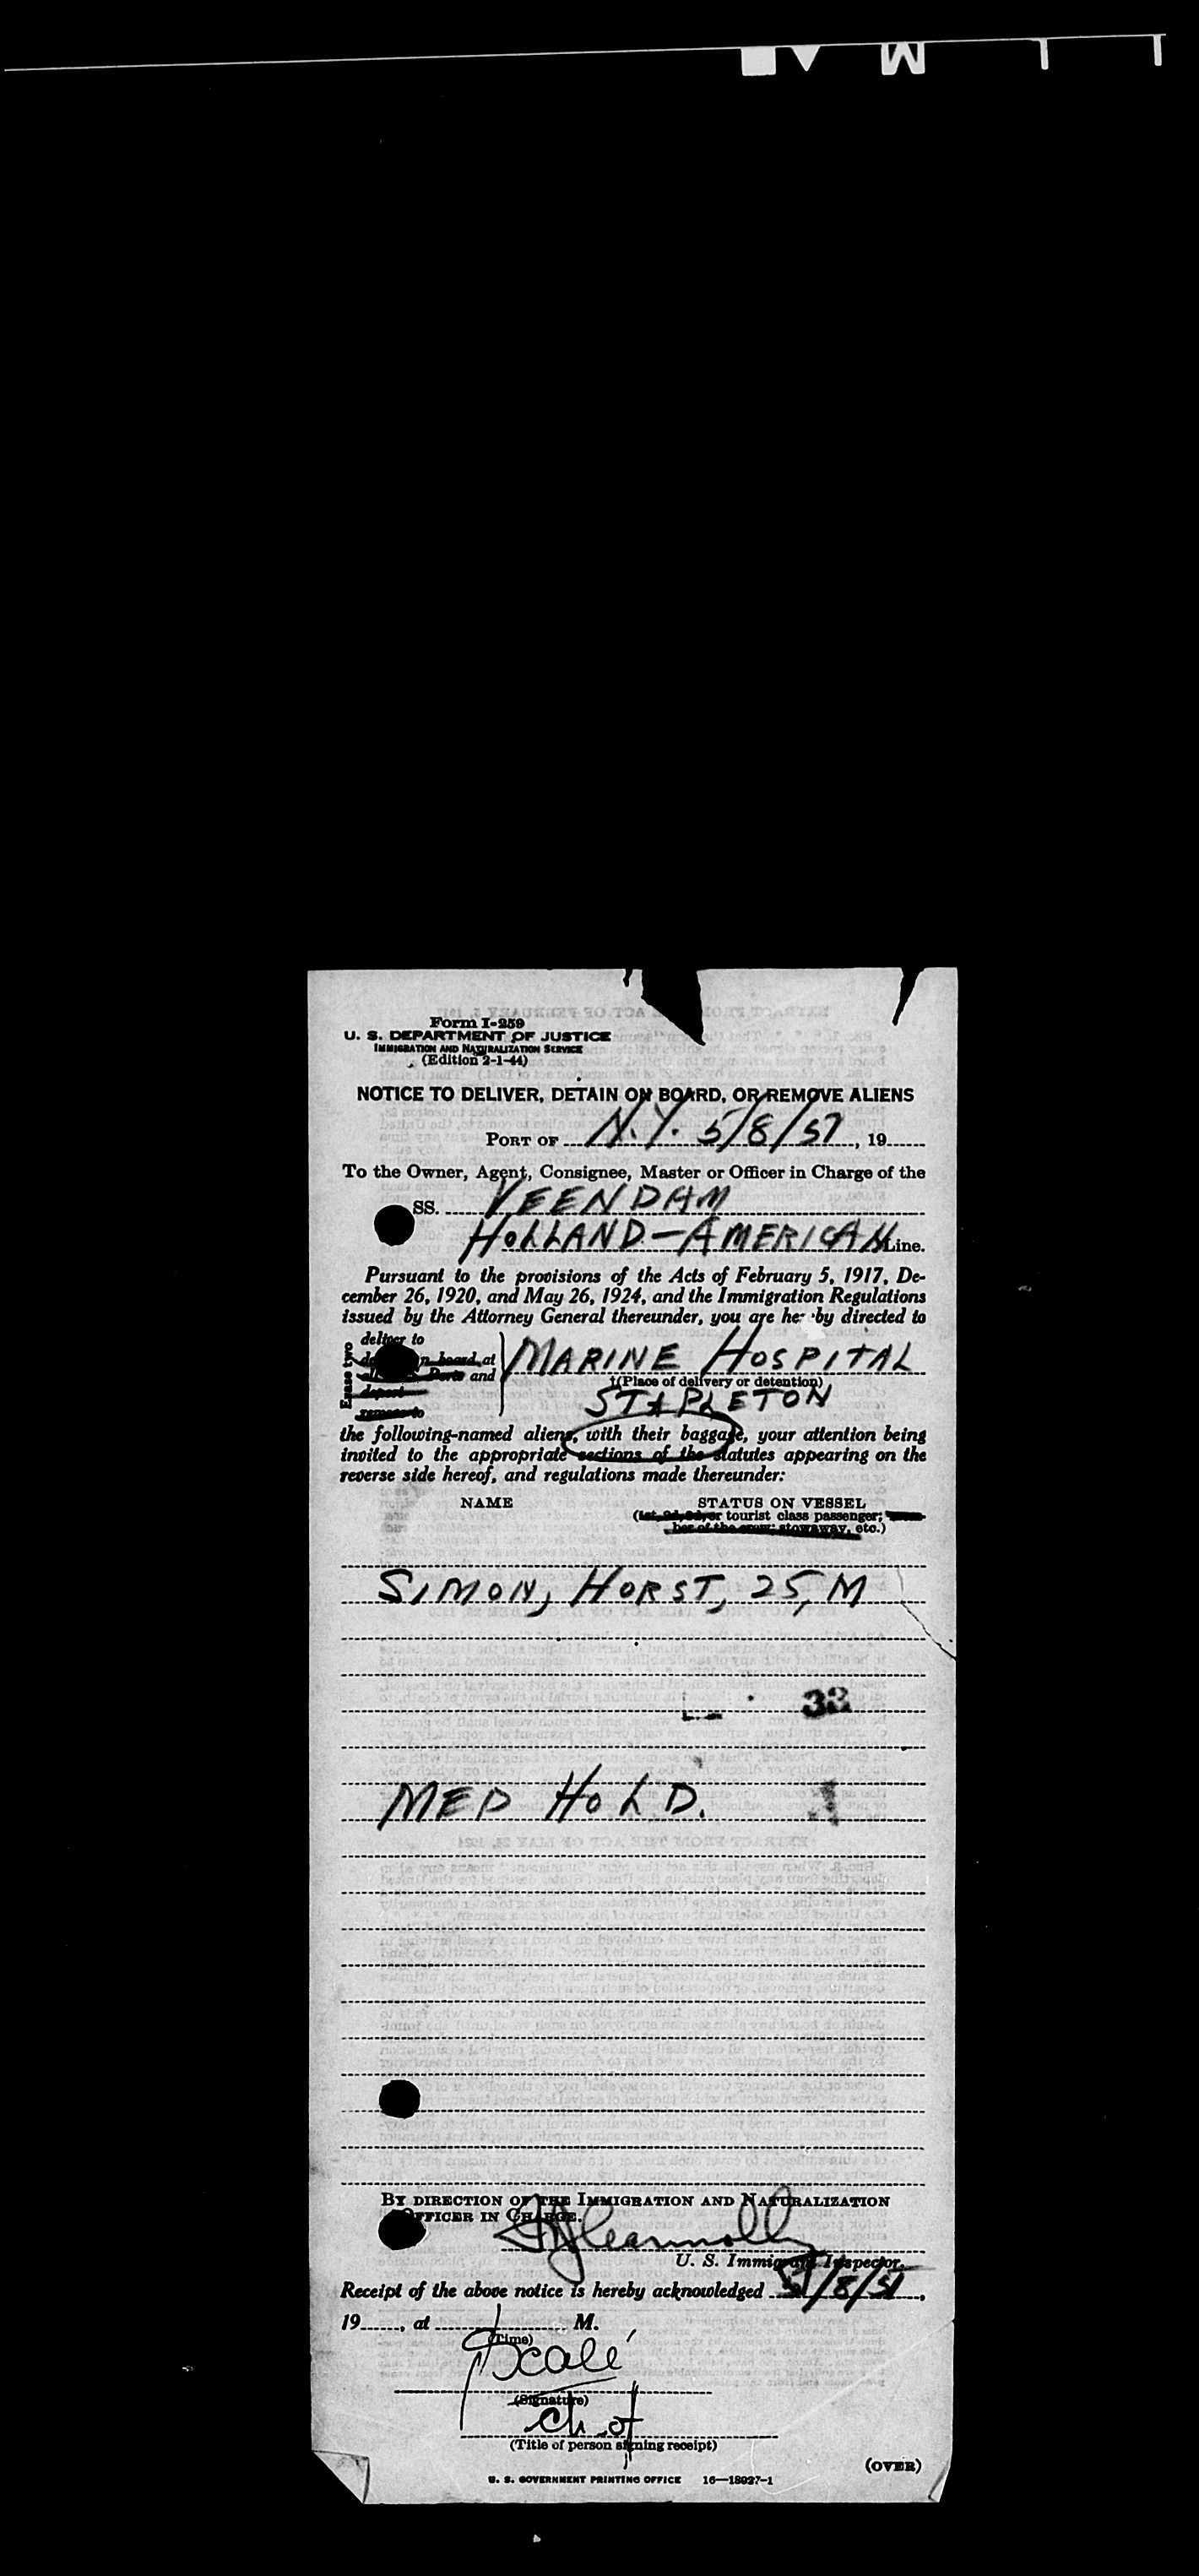 Form I-259
U. S. DEPARTMENT OF JUSTICE
IMMIGRATION AND NATURALIZATION SERVICE
(Edition 2-1-44)
NOTICE TO DELIVER, DETAIN ON BOARD, OR REMOVE ALIENS
PORT OF N.Y. 5/8/51, 19
To the Owner, Agent, Consignee, Master or Officer in Charge of the
SS. VEENDAM
HOLLAND-AMERICAN Line.
Pursuant to the provisions of the Acts of February 5, 1917, De-
cember 26, 1920, and May 26, 1924, and the Immigration Regulations
issued by the Attorney General thereunder, you are hereby directed to
Erase two
deliver to
n board at
and
deport
remove to
MARINE HOSPITAL
†(Place of delivery or detention)
STAPLETON
the following-named aliens, with their baggage, your attention being
invited to the appropriate sections of the statutes appearing on the
reverse side hereof, and regulations made thereunder:
NAME STATUS ON VESSEL
(1st, 2d, 3d, or tourist class passenger; mem-
ber of the crew; stowaway, etc.)
SIMON, HORST, 25, M
33
MED HOLD.
BY DIRECTION OF THE IMMIGRATION AND NATURALIZATION
OFFICER IN CHARGE.
U. S. Immigrant Inspector.
Receipt of the above notice is hereby acknowledged 5/8/51,
19, at M.
(Time)
(Signature)
(Title of person signing receipt)
(OVER)
U. S. GOVERNMENT PRINTING OFFICE 16—18927-1